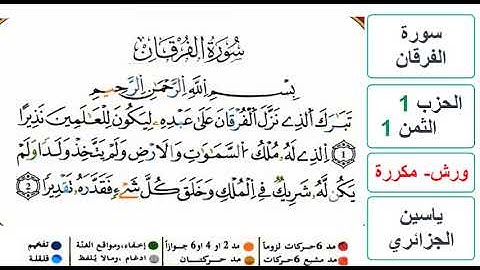 سُورَةُ الفُرْقَانِ
بِسْمِ اللَّهِ الرَّحْمَٰنِ الرَّحِيمِ
تَبَارَكَ الذِے نَزَّلَ الْفُرْقَانَ عَلَىٰ عَبْدِهِۦ لِيَكُونَ لِلْعَٰلَمِينَ نَذِيرًا
١ اَلذِے لَهُۥ مُلْكُ السَّمَٰوَٰتِ وَالَارْضِ وَلَمْ يَتَّخِذْ وَلَدًا وَلَمْ
يَكُن لَّهُۥ شَرِيكٌ فِے الْمُلْكِ وَخَلَقَ كُلَّ شَےْءٍ فَقَدَّرَهُۥ تَقْدِيرًا ٢
مد 6 حركات لزوماً
مد 2 او 4 او 6 جوازاً
إخفاء، ومواقع الغنة
تفخيم
مد مشبع 6 حركات
مد حركتان
ادغام ، ومالا يلفظ
قلقلة
سورة
الفرقان
الحزب 1
الثمن 1
ورش- مكررة
ياسين
الجزائري